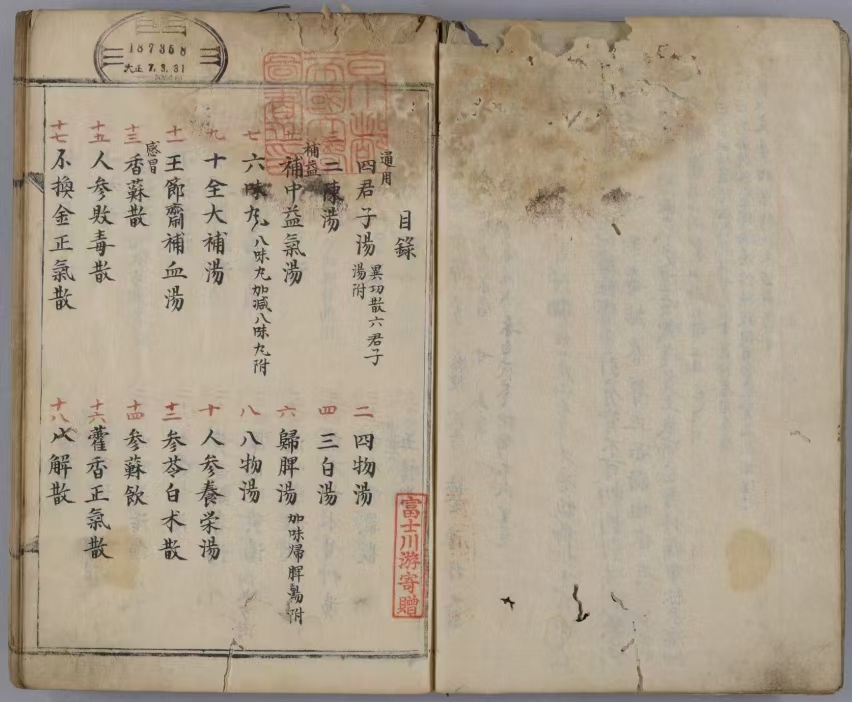 187368
大正 7.3.31
京都
帝國大學
圖書之印
目錄
通用
四君子湯 異功散六君子湯附
二 四物湯
三 二陳湯
四 三白湯
補益
補中益氣湯
六 歸脾湯 加味帰脾湯附
七 六味丸 八味丸加減八味丸附
八 八物湯
九 十全大補湯
十 人參養栄湯
十一 王節齋補血湯
十二 參苓白术散
感冒
十三 香蘇散
十四 參蘇飲
十五 人參敗毒散
十六 藿香正氣散
十七 不換金正氣散
十八 八解散
富士川游寄贈